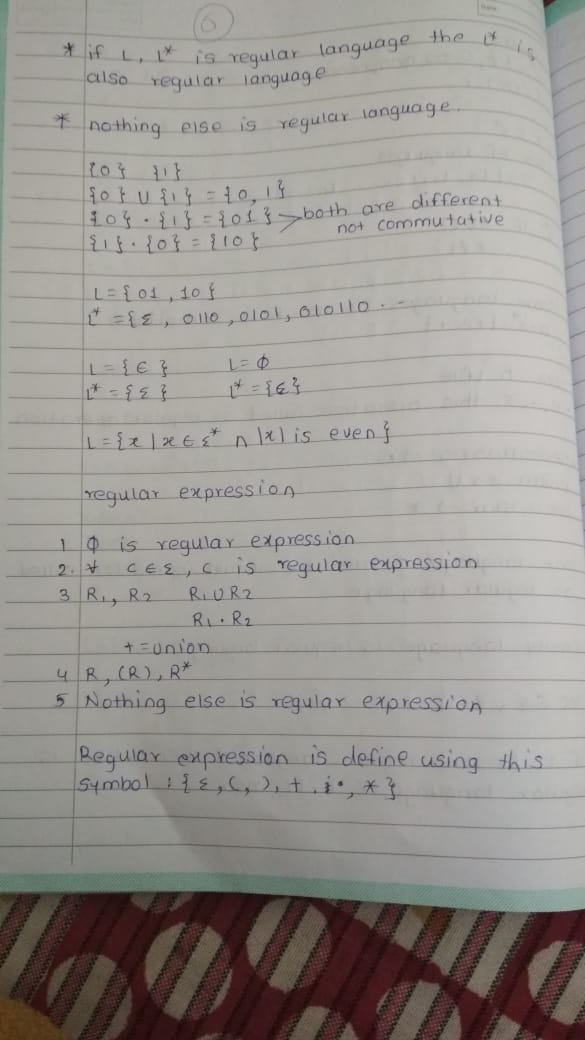 6
* if L, L* is regular language the L* is
also regular language
* nothing else is regular language.
{0} {1}
{0} ∪ {1} = {0, 1}
{0} · {1} = {01} both are different
not commutative
{1} · {0} = {10}
L = {01, 10}
L* = {Σ, 0110, 0101, 010110 . -
L = {ϵ} L = Φ
L* = {Σ} L* = {ϵ}
L = {x | x ϵ Σ* ∩ |x| is even}
regular expression
1 Φ is regular expression
2. ∀ C ϵ Σ, C is regular expression
3 R1, R2 R1 ∪ R2
R1 . R2
+ = union
4 R, (R), R*
5 Nothing else is regular expression
Regular expression is define using this
symbol : { Σ, (, ), +, *}